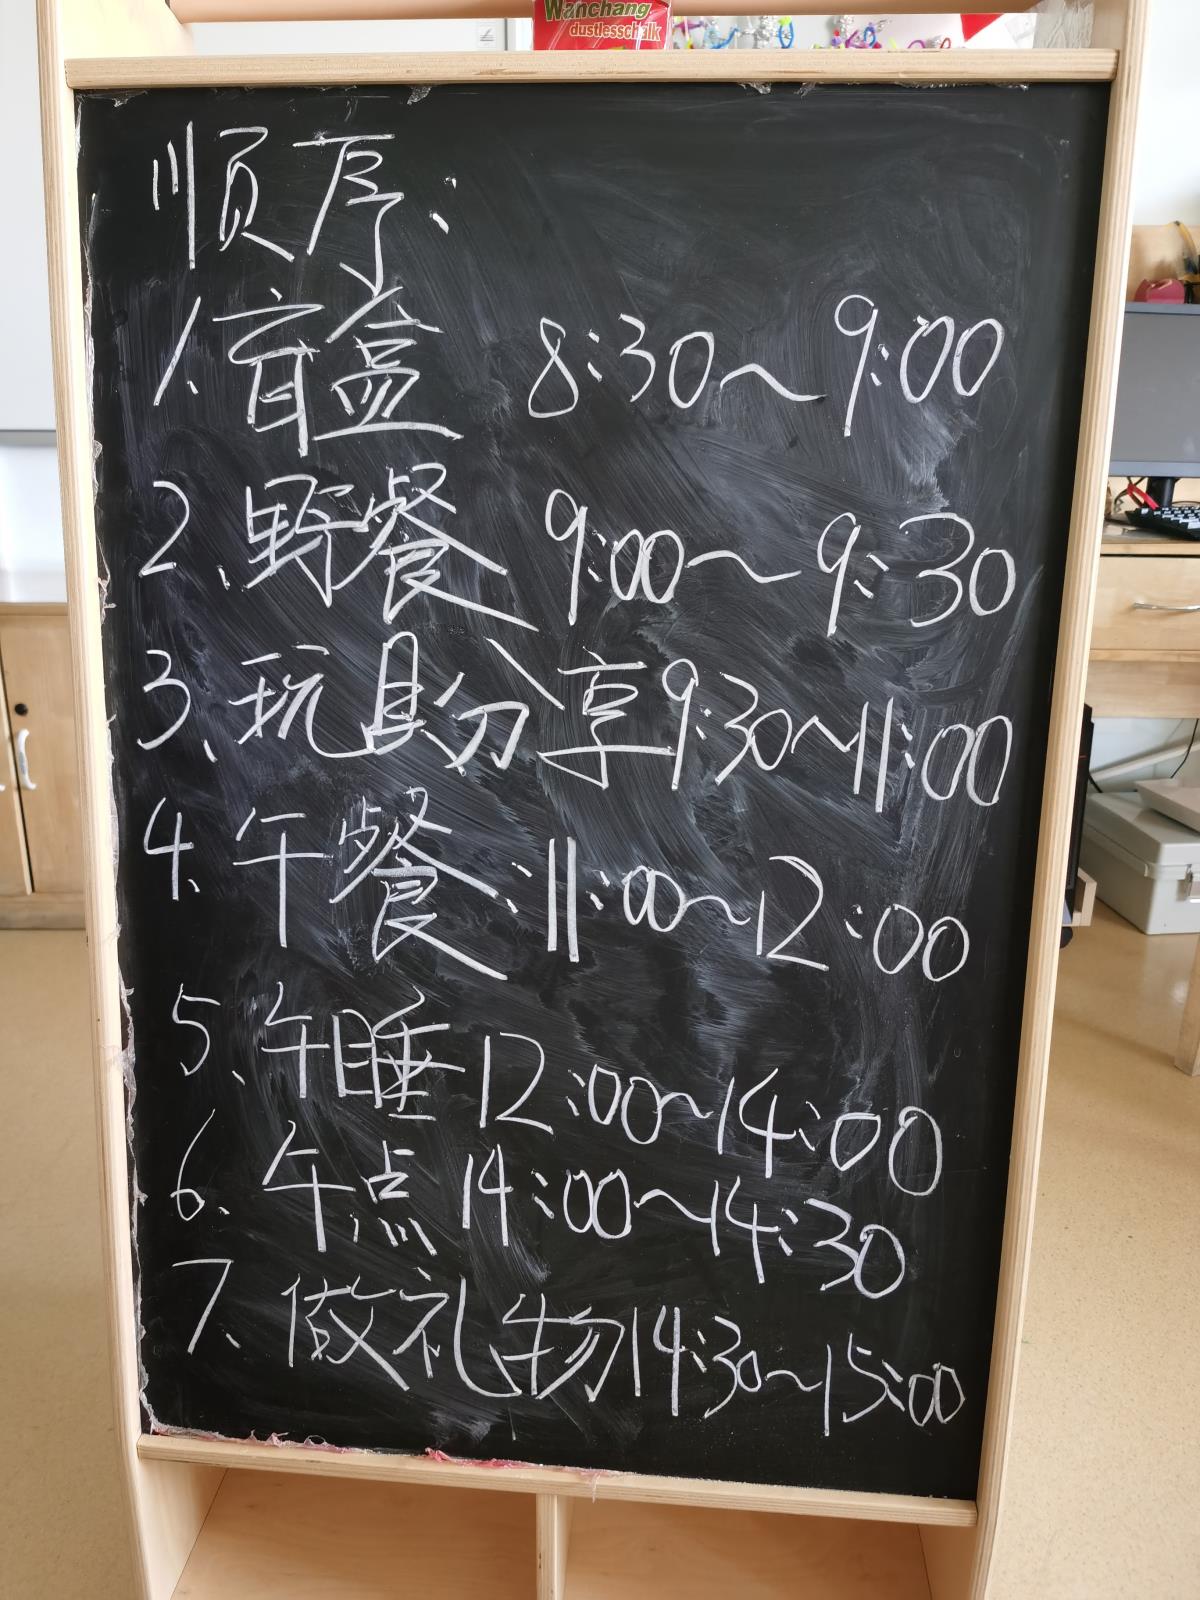 Wanchang
dustlesschalk
顺序:
1、盲盒 8:30~9:00
2、野餐 9:00~9:30
3、玩具分享9:30~11:00
4、午餐:11:00~12:00
5、午睡12:00~14:00
6、午点14:00~14:30
7、做礼物14:30~15:00